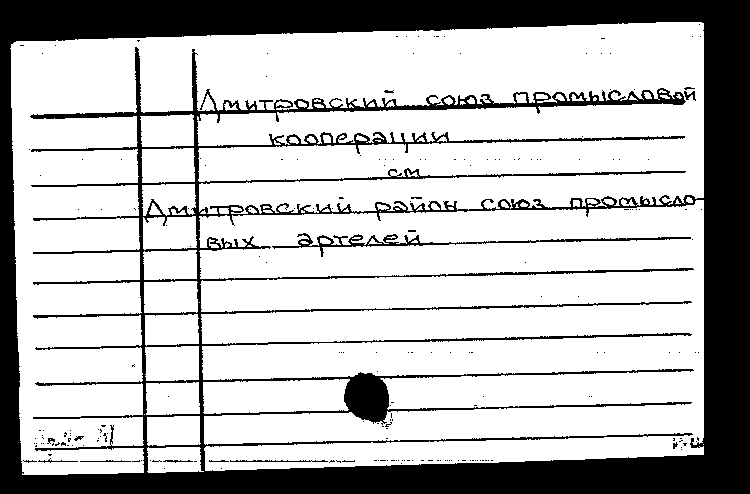 Дмитровский союз промысловой
кооперации
см
Дмитровский район союз промысло-
вых артелей